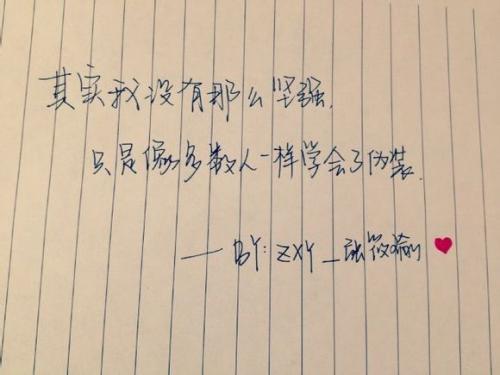 其实我没有那么坚强.
只是像多数人一样学会了伪装.
——BY: ZXY_张筱瑜